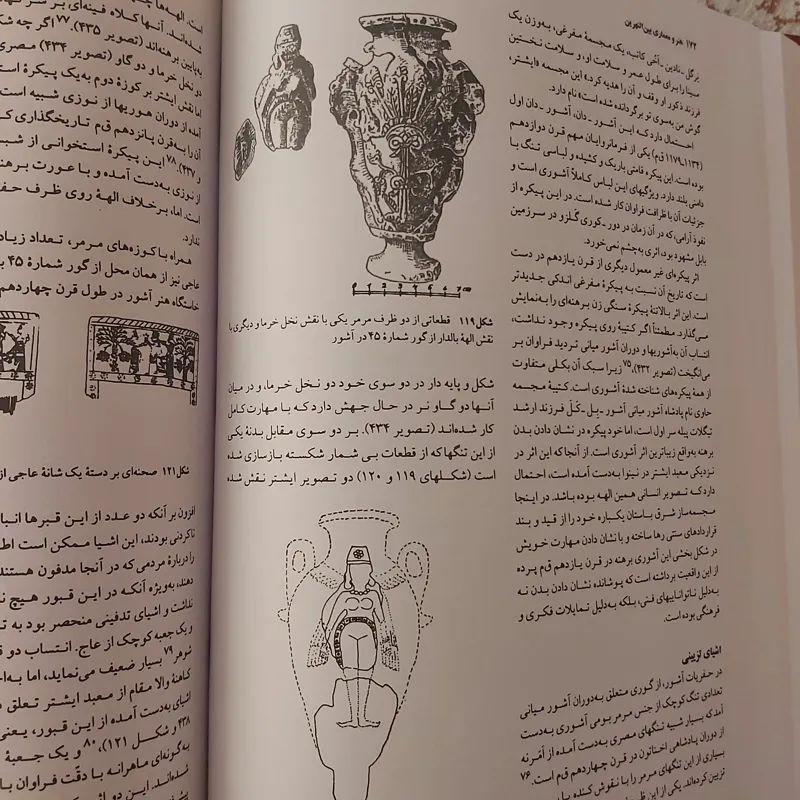 ۱۷۲ هنر و معماری بین‌النهرین
برگل ـ نادین ـ آخی کاتب، یک مجسمهٔ مفرغی، به‌وزن یک
مینا را برای طول عمر و سلامت او، و سلامت نخستین
فرزند ذکور او وقف و آن را هدیه کرد» این مجسمه «ایشتر،
گوش من به‌سوی تو برگردانده شده است» نام دارد.
احتمال دارد که این آشور ـ دان، آشور ـ دان اول
(۱۱۳۴ـ۱۱۷۹ ق‌م) یکی از فرمانروایان مهم قرن دوازدهم
بوده است. این پیکره قامتی باریک و کشیده و لباسی تنگ با
دامنی بلند دارد. ویژگیهای این لباس کاملاً آشوری است و
جزئیات آن با ظرافت فراوان کار شده است. در این پیکره از
نفوذ آرامی، که در آن زمان در دور ـ کوری گلزو در سرزمین
بابل مشهود بود، اثری به‌چشم نمی‌خورد.
اثر پیکره‌ای غیر معمول دیگری از قرن یازدهم در دست
است که تاریخ آن نسبت به پیکرهٔ مفرغی اندکی جدیدتر
است. این اثر بالاتنهٔ پیکرهٔ سنگی زن برهنه‌ای را به‌نمایش
می‌گذارد. مطمئناً اگر کتیبهٔ روی پیکره وجود نداشت،
انتساب آن به‌آشوریها و دوران آشور میانی تردید فراوان بر
می‌انگیخت (تصویر ۴۳۲)،۷۵ زیرا سبک آن بکلی متفاوت
از همهٔ پیکره‌های شناخته شدهٔ آشوری است. کتیبهٔ مجسمه
حاوی نام پادشاه آشور میانی آشور ـ بِل ـ کَلَ فرزند ارشد
تیگلات پیله سر اول است، اما خود پیکره در نشان دادن بدن
برهنه به‌واقع زیباترین اثر آشوری است. از آنجا که این اثر در
نزدیکی معبد ایشتر در نینوا به‌دست آمده است، احتمال
دارد که تصویر انسانی همین الهه بوده باشد. در اینجا
مجسمه‌ساز شرق باستان یکباره خود را از قید و بند
قراردادهای سنتی رها ساخته و با نشان دادن مهارت خویش
در شکل بخشی این آشوری برهنه در قرن یازدهم ق‌م پرده
از این واقعیت برداشته است که پوشانده نشان دادن بدن نه
به‌دلیل ناتوانایهای فنی، بلکه به‌دلیل تمایلات فکری و
فرهنگی بوده است.
اشیای تزیینی
در حفریات آشور، از گوری متعلق به‌دوران آشور میانی
تعدادی تنگ کوچک از جنس مرمر بومی آشوری به‌دست
آمد که بسیار شبیه تنگهای مصری به‌دست آمده از آمَرنه
از دوران پادشاهی اخناتون در قرن چهاردهم ق‌م است.۷۶
بسیاری از این تنگهای مرمر را با نقوش کنده یا
تزیین کرده‌اند. یکی از این
شکل ۱۱۹ قطعاتی از دو ظرف مرمر یکی با نقش نخل خرما و دیگری با
نقش الههٔ بالدار از گور شمارهٔ ۴۵ در آشور
شکل و پایه دار در دو سوی خود دو نخل خرما، و در میان
آنها دو گاو نر در حال جهش دارد که با مهارت کامل
کار شده‌اند (تصویر ۴۳۴). بر دو سوی مقابل بدنهٔ یکی
از این تنگها که از قطعات بی شمار شکسته بازسازی شده
است (شکلهای ۱۱۹ و ۱۲۰) دو تصویر ایشتر نقش شده
است. الهه‌ها
شده‌اند. آنها کلاه فینه‌ای بر سر
به‌پایین برهنه‌اند (تصویر ۴۳۵).۷۷ اگر چه
دو نخل خرما و دو گاو (تصویر ۴۳۴) مصری
اما نقش ایشتر بر کوزهٔ دوم به‌یک پیکرهٔ
آمده از دوران هوریها از نوزی شبیه است
آن را به‌قرن پانزدهم ق‌م تاریخگذاری
و ۴۳۷).۷۸ این پیکرهٔ استخوانی از
از نوزی به‌دست آمده و با عورت
است. اما، برخلاف الههٔ روی ظرف
ندارد.
همراه با کوزه‌های مرمر، تعداد
عاجی نیز از همان محل از گور شمارهٔ ۴۵
خاستگاه هنر آشور در طول قرن چهاردهم
شکل ۱۲۱ صحنه‌ای بر دستهٔ یک شانهٔ عاجی از
افزون بر آنکه دو عدد از این قبرها
ناکردنی بودند، این اشیا ممکن است
را دربارهٔ مردمی که در آنجا مدفون هستند
دهند، به‌ویژه آنکه در این قبور هیچ
نداشت و اشیای تدفینی منحصر بود به
و یک جعبه کوچک از عاج. انتساب دو
شوهر۷۹ بسیار ضعیف می‌نماید، اما
کاهنهٔ والا مقام از معبد ایشتر تعلق
اشیای به‌دست آمده از این قبور، یعنی
۴۳۸ و شکل ۱۲۱)،۸۰ و یک جعبهٔ
به‌گونه‌ای ماهرانه با دقّت فراوان
شده‌اند. این دو